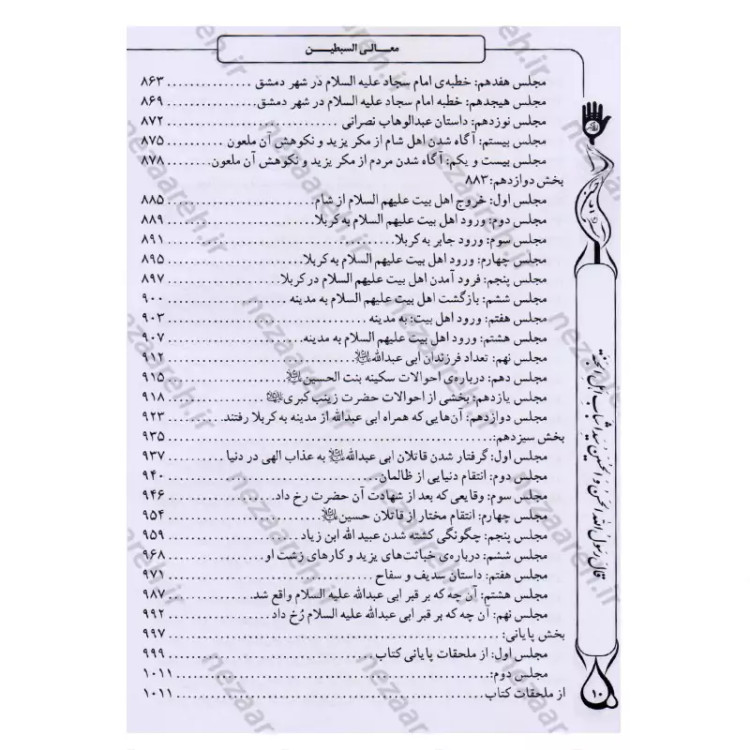 معـــالـی السبطیـــن
مجلس هفدهم: خطبه‌ی امام سجاد علیه السلام در شهر دمشق ............... ۸۶۳
مجلس هیجدهم: خطبه امام سجاد علیه السلام در شهر دمشق............... ۸۶۹
مجلس نوزدهم: داستان عبدالوهاب نصرانی ............... ۸۷۲
مجلس بیستم: آگاه شدن اهل شام از مکر یزید و نکوهش آن ملعون ......... ۸۷۵
مجلس بیست و یکم: آگاه شدن مردم از مکر یزید و نکوهش آن ملعون....... ۸۷۸
بخش دوازدهم: ۸۸۳
مجلس اول: خروج اهل بیت علیهم السلام از شام ............... ۸۸۵
مجلس دوم: ورود اهل بیت علیهم السلام به کربلا ............... ۸۸۹
مجلس سوم: ورود جابر به کربلا ............... ۸۹۱
مجلس چهارم: ورود اهل بیت علیهم السلام به کربلا ............... ۸۹۵
مجلس پنجم: فرود آمدن اهل بیت علیهم السلام در کربلا ............... ۸۹۷
مجلس ششم: بازگشت اهل بیت علیهم السلام به مدینه ............... ۹۰۰
مجلس هفتم: ورود اهل بیت: به مدینه ............... ۹۰۳
مجلس هشتم: ورود اهل بیت علیهم السلام به مدینه............... ۹۰۷
مجلس نهم: تعداد فرزندان ابی عبدالله............... ۹۱۲
مجلس دهم: درباره‌ی احوالات سکینه بنت الحسین............... ۹۱۵
مجلس یازدهم: بخشی از احوالات حضرت زینب کبری ............... ۹۱۸
مجلس دوازدهم: آن‌هایی که همراه ابی عبدالله از مدینه به کربلا رفتند......... ۹۲۳
بخش سیزدهم:............... ۹۳۵
مجلس اول: گرفتار شدن قاتلان ابی عبدالله به عذاب الهی در دنیا ......... ۹۳۷
مجلس دوم: انتقام دنیایی از ظالمان ............... ۹۴۰
مجلس سوم: وقایعی که بعد از شهادت آن حضرت رخ داد............... ۹۴۶
مجلس چهارم: انتقام مختار از قاتلان حسین............... ۹۵۴
مجلس پنجم: چگونگی کشته شدن عبید الله ابن زیاد ............... ۹۵۹
مجلس ششم: درباره‌ی خباثت‌های یزید و کارهای زشت او............... ۹۶۸
مجلس هفتم: داستان سدیف و سفاح ............... ۹۷۱
مجلس هشتم: آن چه که بر قبر ابی عبدالله علیه السلام واقع شد............... ۹۸۷
مجلس نهم: آن چه که بر قبر ابی عبدالله علیه السلام رُخ داد ............... ۹۹۲
بخش پایانی:............... ۹۹۷
مجلس اول: از ملحقات پایانی کتاب ............... ۹۹۹
مجلس دوم:............... ۱۰۱۱
از ملحقات کتاب............... ۱۰۱۱
قال رسول الله الحسن و الحسین سیدا شباب اهل الجنة
۱۰
nezaareh.ir